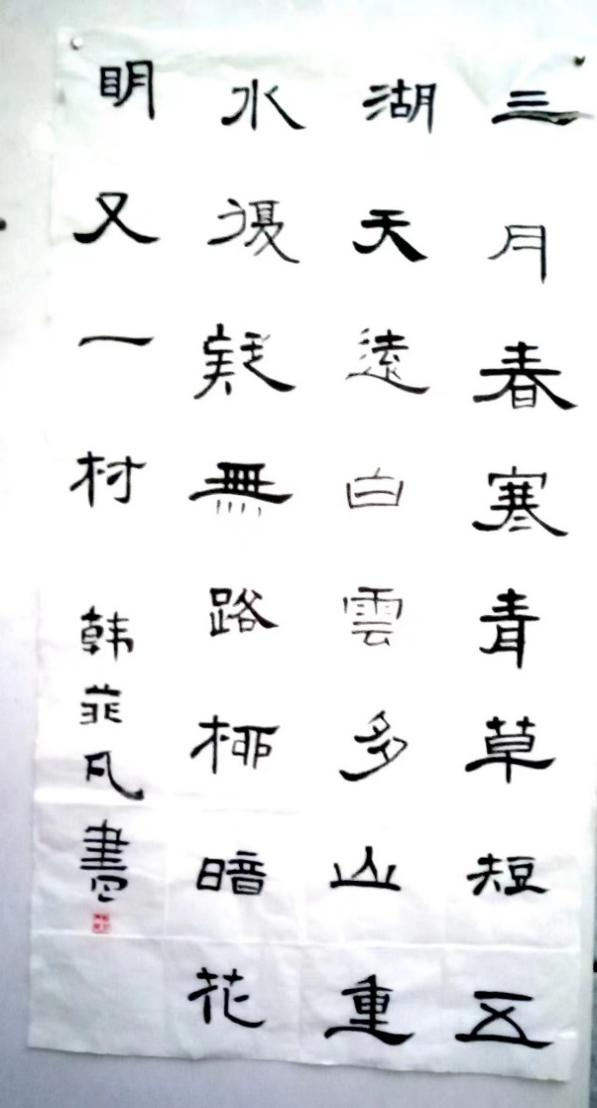 三月春寒青草短五
湖天遠白雲多山重
水復疑無路柳暗花
明又一村
韩菲凡書